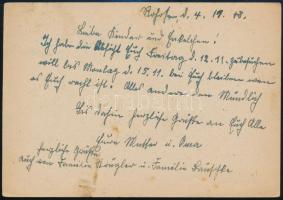 d. 4. 19. 48.
Liebe Kinder und Enkelchen!
Ich habe die Absicht Euch Freitag d. 12. 11. zu besuchen
will bis Montag d. 15. 11. bei Euch bleiben wenn
es Euch recht ist. Alles andere dann Mündlich
Bis dahin herzliche Grüße an Euch Alle
Eure Mutter u. Oma
herzliche Grüße
auch von Familie u. Familie